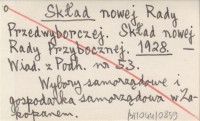 Skład nowej Rady
Przedwyborczej. Skład nowej
Rady Przybocznej. 1928. —
Wiad. z Podh. nr 53.
Wybory samorządowe i
gospodarka samorządowa w Za-
kopanem.